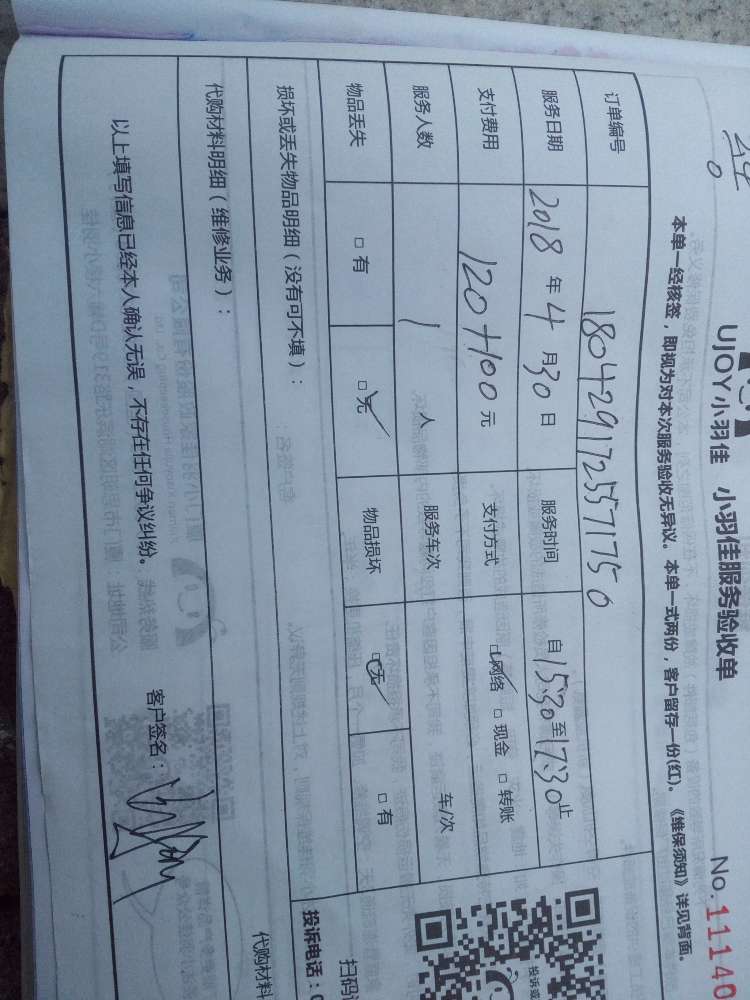 UJOY小羽佳 小羽佳服务验收单
No.11140
本单一经核签，即视为对本次服务验收无异议。本单一式两份，客户留存一份(红)。《维保须知》详见背面。
订单编号 1804291725571750
服务日期 2018年4月30日 服务时间 自15:30至17:30止
支付费用 120+100元 支付方式 网络 □现金 □转账
服务人数 1人 服务车次 车/次
物品丢失 □有 □无 物品损坏 □无 □有
损坏或丢失物品明细（没有可不填）：
代购材料明细（维修业务）：
代购材料
以上填写信息已经本人确认无误，不存在任何争议纠纷。
客户签名：
投诉电话：
扫码